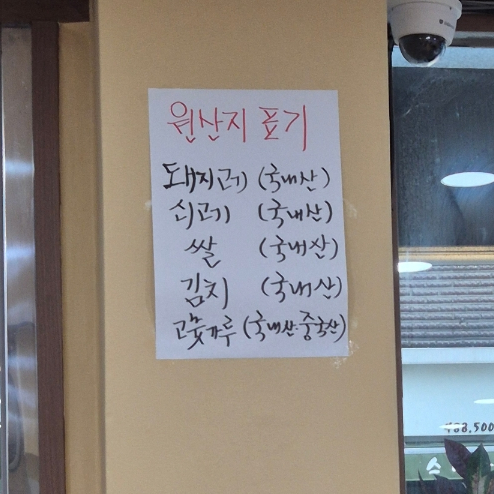 원산지 표기
돼지고기 (국내산)
쇠고기 (국내산)
쌀 (국내산)
김치 (국내산)
고춧가루 (국내산·중국산)